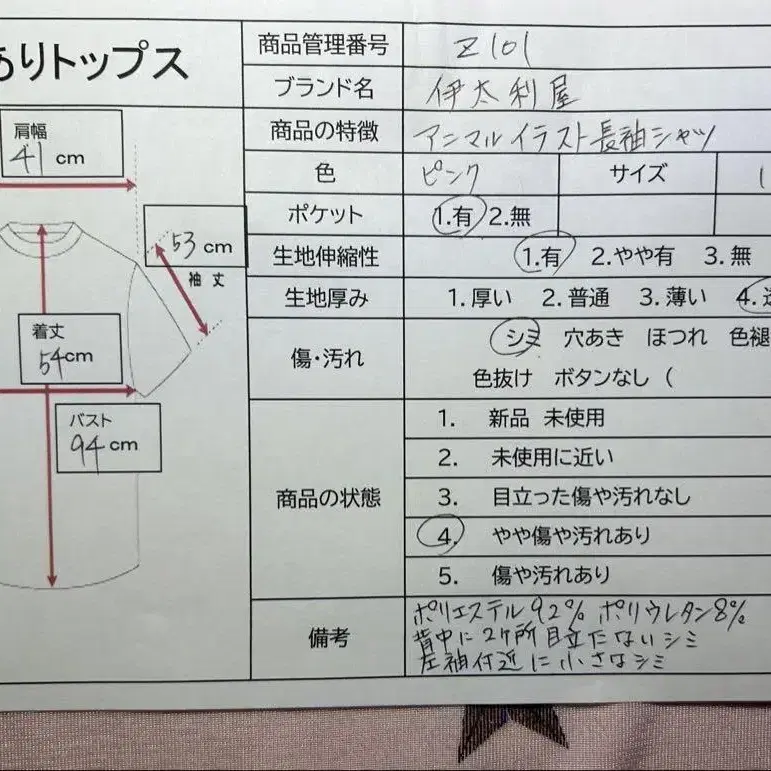 ありトップス
肩幅
41 cm
53 cm
袖丈
着丈
54cm
バスト
94 cm
商品管理番号 Z101
ブランド名 伊太利屋
商品の特徴 アニマルイラスト長袖シャツ
色 ピンク サイズ
ポケット 1.有 2.無
生地伸縮性 1.有 2.やや有 3.無
生地厚み 1.厚い 2.普通 3.薄い 4.
傷・汚れ シミ 穴あき ほつれ 色褪
色抜け ボタンなし (
商品の状態
1. 新品 未使用
2. 未使用に近い
3. 目立った傷や汚れなし
4. やや傷や汚れあり
5. 傷や汚れあり
備考
ポリエステル92% ポリウレタン8%
背中に2ヶ所目立たないシミ
左袖付近に小さなシミ